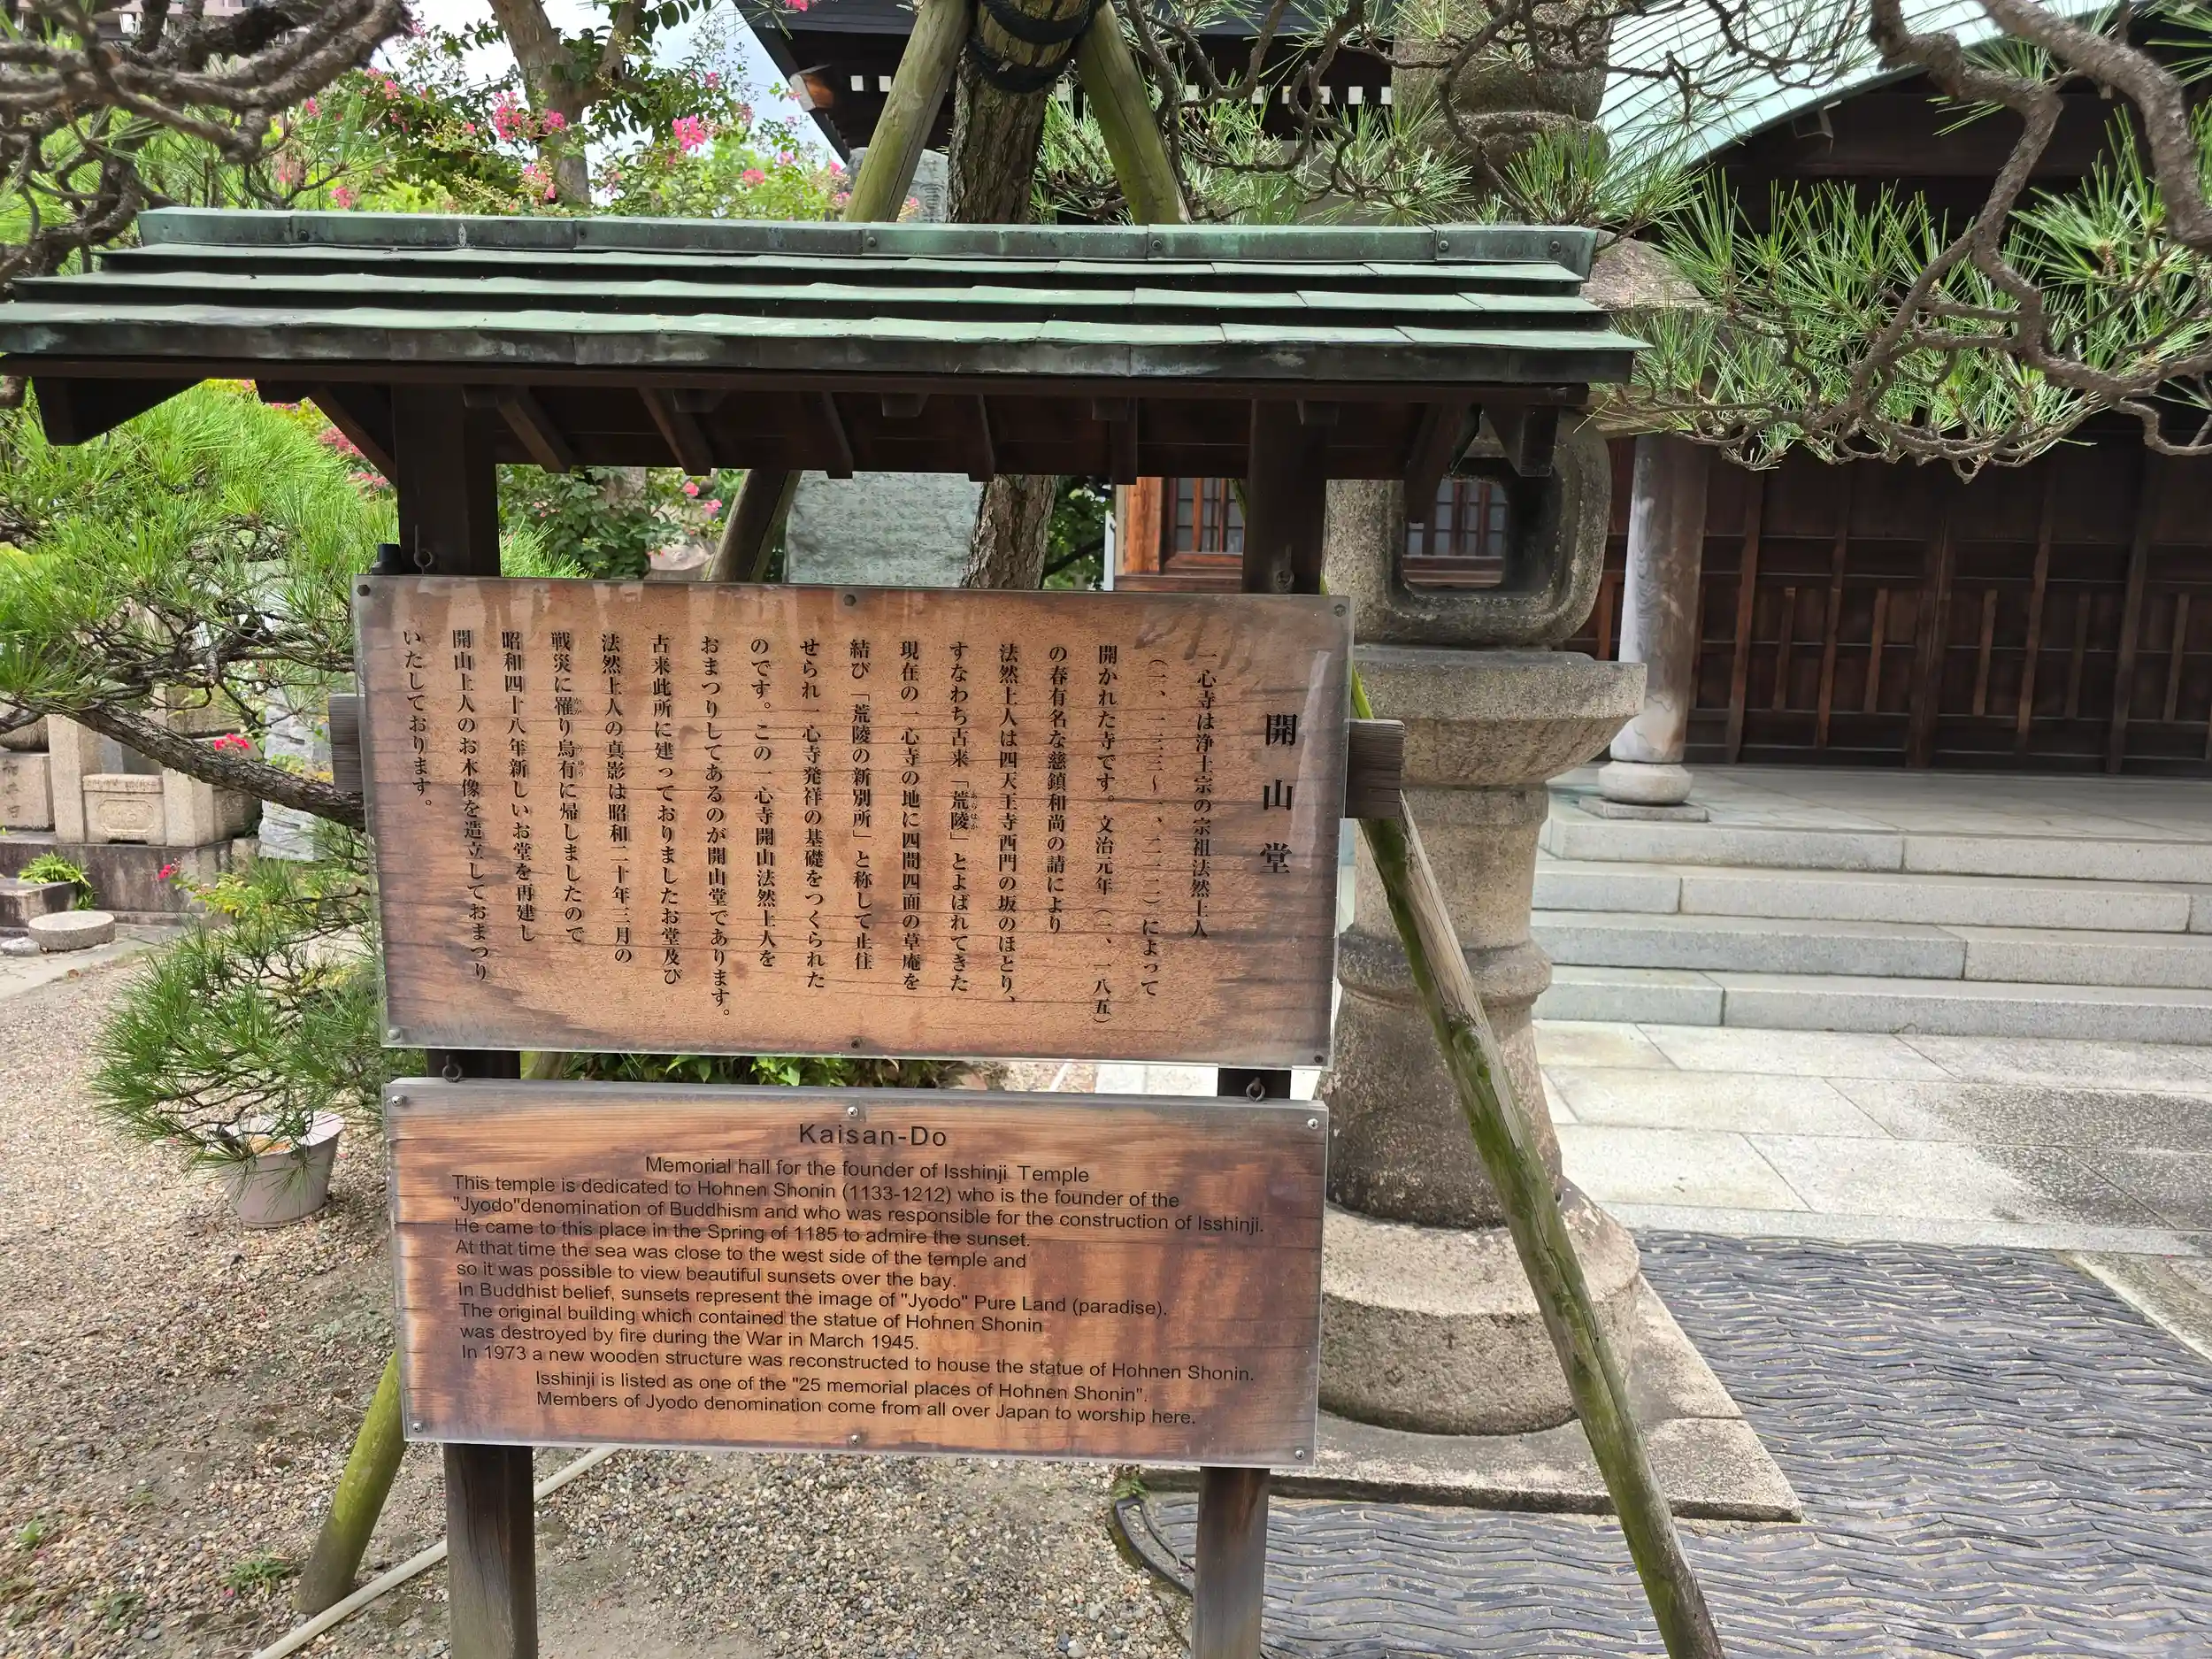 開山堂
一心寺は浄土宗の宗祖法然上人
（一、一三三〜一、二一二）によって
開かれた寺です。文治元年（一、一八五）
の春有名な慈鎮和尚の請により
法然上人は四天王寺西門の坂のほとり、
すなわち古来「荒陵」とよばれてきた
現在の一心寺の地に四間四面の草庵を
結び「荒陵の新別所」と称して止住
せられ一心寺発祥の基礎をつくられた
のです。この一心寺開山法然上人を
おまつりしてあるのが開山堂であります。
古来此所に建っておりましたお堂及び
法然上人の真影は昭和二十年三月の
戦災に罹り烏有に帰しましたので
昭和四十八年新しいお堂を再建し
開山上人のお木像を造立しておまつり
いたしております。
Kaisan-Do
Memorial hall for the founder of Isshinji Temple
This temple is dedicated to Hohnen Shonin (1133-1212) who is the founder of the
"Jyodo"denomination of Buddhism and who was responsible for the construction of Isshinji.
He came to this place in the Spring of 1185 to admire the sunset.
At that time the sea was close to the west side of the temple and
so it was possible to view beautiful sunsets over the bay.
In Buddhist belief, sunsets represent the image of "Jyodo" Pure Land (paradise).
The original building which contained the statue of Hohnen Shonin
was destroyed by fire during the War in March 1945.
In 1973 a new wooden structure was reconstructed to house the statue of Hohnen Shonin.
Isshinji is listed as one of the "25 memorial places of Hohnen Shonin".
Members of Jyodo denomination come from all over Japan to worship here.